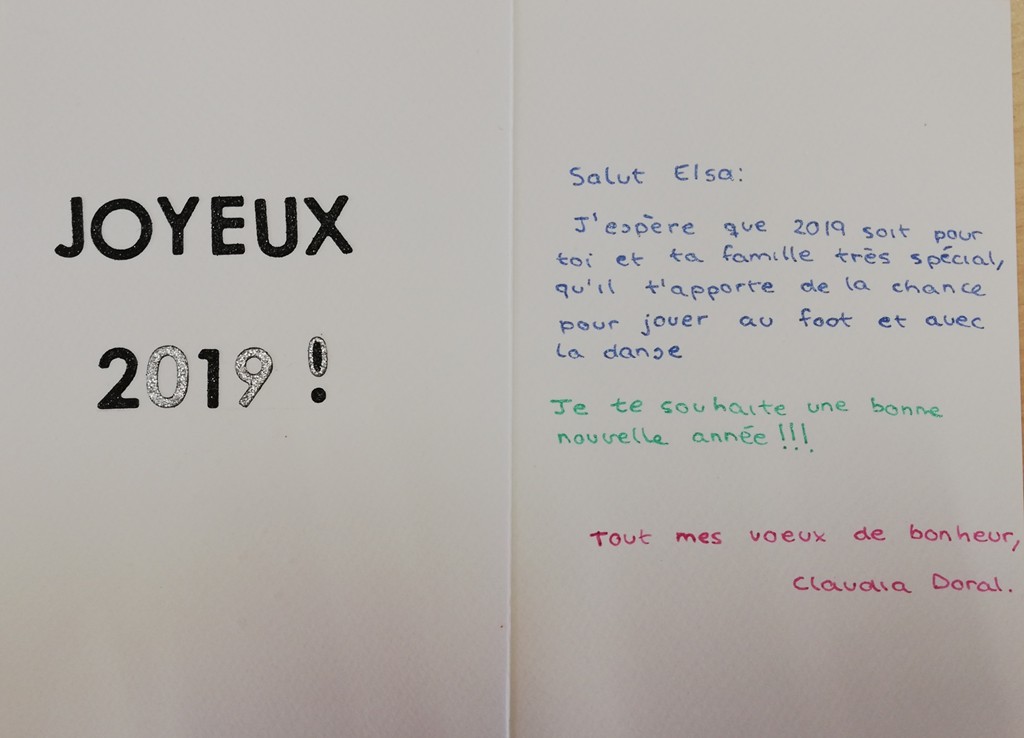 JOYEUX
2019 !
Salut Elsa:
J'espère que 2019 soit pour
toi et ta famille très spécial,
qu'il t'apporte de la chance
pour jouer au foot et avec
la danse
Je te souhaite une bonne
nouvelle année!!!
Tout mes voeux de bonheur,
Claudia Doral.